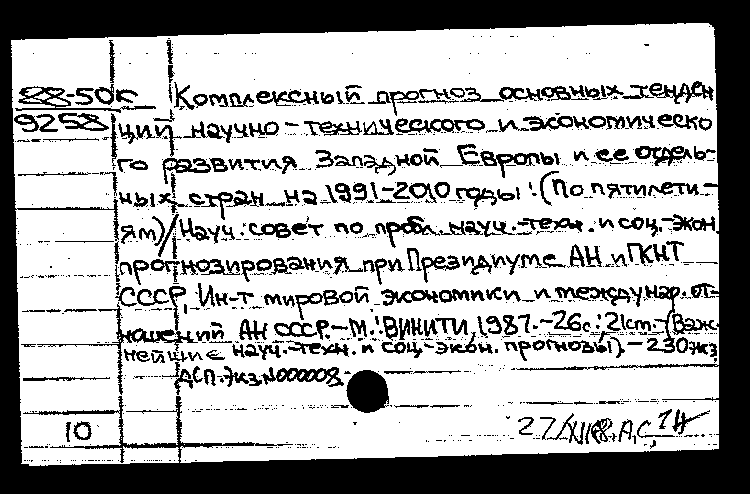 88-50к Комплексный прогноз основных тенден
9258 ций научно-технического и экономическо
го развития Западной Европы и ее отдель-
ных стран на 1991-2010 годы: (По пятилети-
ям)/ Науч. совет по пробл. науч.-техн. и соц.-экон.
прогнозирования при Президиуме АН и ГКНТ
СССР, Ин-т мировой экономики и междунар. от-
ношений АН СССР.-М.: ВИНИТИ, 1987.-26с.: 21cm.-(Важ-
нейшие науч.-техн. и соц.-экон. прогнозы).-230экз
ДСП. Экз.N000008.
10